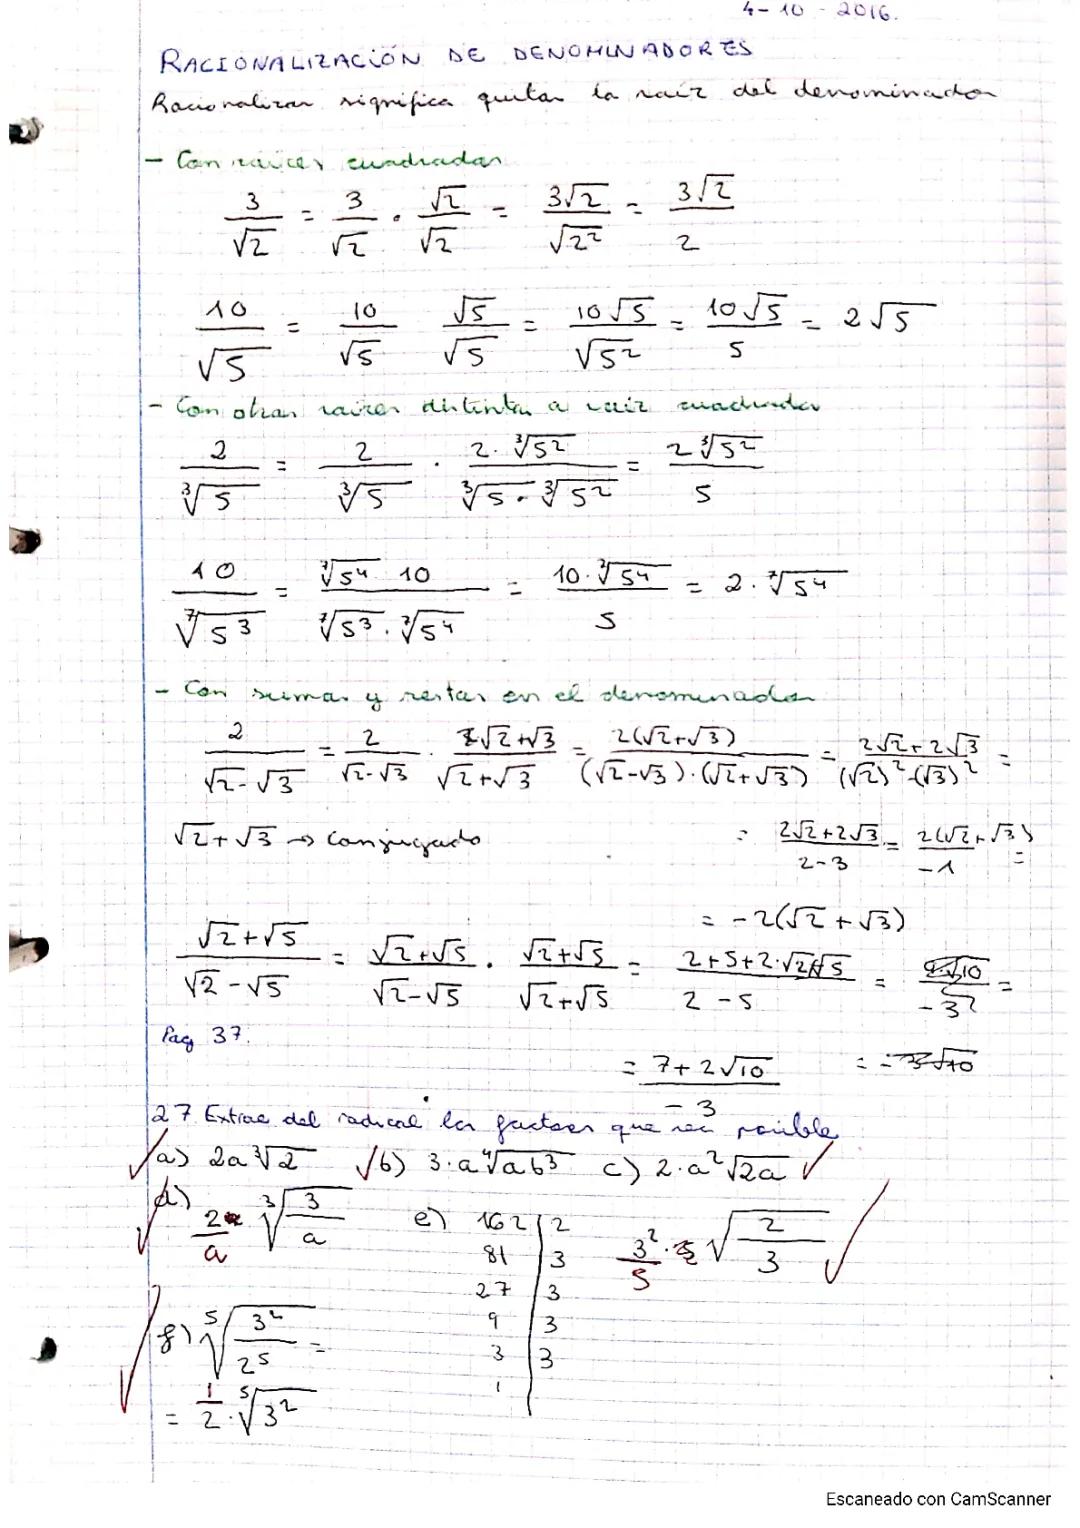 4-10-2016.
RACIONALIZACIÓN DE DENOMINADORES
Racionalizar significa quitar la raiz del denominador
- Con raíces cuadradas
3/√2 = 3/√2 · √2/√2 = 3√2/√2² = 3√2/2
10/√5 = 10/√5 √5/√5 = 10√5/√5² = 10√5/5 = 2√5
- Con otras raices distinta a raiz cuadrada
2/∛5 = 2/∛5 · 2·∛5²/∛5·∛5² = 2∛5²/5
10/⁷√5³ = ⁷√5⁴ 10/⁷√5³·⁷√5⁴ = 10·⁷√5⁴/5 = 2·⁷√5⁴
- Con sumas y restas en el denominador
2/√2-√3 = 2/√2-√3 · √2+√3/√2+√3 = 2(√2+√3)/(√2-√3)·(√2+√3) = 2√2+2√3/(√2)²-(√3)² =
√2+√3 → Conjugado
= 2√2+2√3/2-3 = 2(√2+√3)/-1 =
= -2(√2+√3)
√2+√5/√2-√5 = √2+√5/√2-√5 · √2+√5/√2+√5 = 2+5+2·√2·√5/2-5 = =
Pag 37.
= 7+2√10/-3 =
27 Extrae del radical los factores que sea posible
a) 2a∛2 b) 3·a⁴√ab³ c) 2·a²√2a
d) 2/a ∛3/a e) 162 | 2 3²/5 · √2/3
81 | 3
27 | 3
9 | 3
3 | 3
1
f) ⁵√3²/2⁵ =
= 1/2·⁵√3²
Escaneado con CamScanner